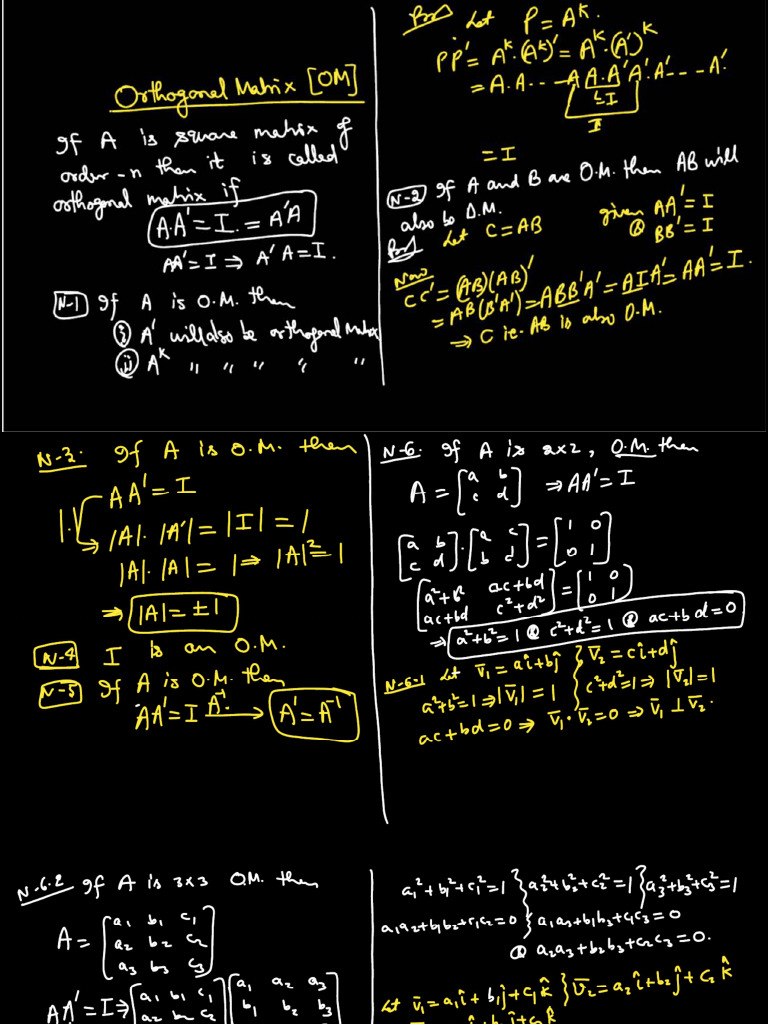 Orthogonal Matrix [OM]
If A is square matrix of
order-n then it is called
orthogonal matrix if
A.A' = I = A'A
AA' = I ⇒ A'A = I.
N-1 If A is O.M. then
(i) A' will also be orthogonal Matrix
(ii) A^k " " " " "
Proof Let P = A^k.
PP' = A^k.(A^k)' = A^k.(A')^k
= A.A... - A A.A' A'.A'- - - A'.
= I
I
= I
N-2 If A and B are O.M. then AB will
also be O.M.
given AA' = I
& BB' = I
Proof Let C = AB
Now
CC' = (AB)(AB)'
= AB(B'A') = ABB'A' = AIA' = AA' = I.
⇒ C ie. AB is also O.M.
N-3. If A is O.M. then
AA' = I
|.|
|A|. |A'| = |I| = 1
|A|. |A| = 1 ⇒ |A|² = 1
⇒ |A| = ±1
N-4 I is an O.M.
N-5 If A is O.M. then
AA' = I A⁻¹. → A' = A⁻¹
N-6. If A is 2x2, O.M. then
A = [a b; c d] ⇒ AA' = I
[a b; c d].[a c; b d] = [1 0; 0 1]
[a²+b² ac+bd; ac+bd c²+d²] = [1 0; 0 1]
⇒ a²+b²=1 & c²+d²=1 & ac+bd=0
N-6-1 Let v̄₁ = aî+bĵ } v̄₂ = cî+dĵ
a²+b²=1 ⇒ |v̄₁| = 1 } c²+d²=1 ⇒ |v̄₂| = 1
ac+bd=0 ⇒ v̄₁.v̄₂=0 ⇒ v̄₁ ⊥ v̄₂.
N-6.2 If A is 3x3 O.M. then
A = [a₁ b₁ c₁; a₂ b₂ c₂; a₃ b₃ c₃]
AA' = I ⇒ [a₁ b₁ c₁; a₂ b₂ c₂ [a₁ a₂ a₃; b₁ b₂ b₃
a₁²+b₁²+c₁²=1 } a₂²+b₂²+c₂²=1 } a₃²+b₃²+c₃²=1
a₁a₂+b₁b₂+c₁c₂=0 } a₁a₃+b₁b₃+c₁c₃=0
& a₂a₃+b₂b₃+c₂c₃=0.
Let v̄₁ = a₁î+b₁ĵ+c₁k̂ } v̄₂ = a₂î+b₂ĵ+c₂k̂